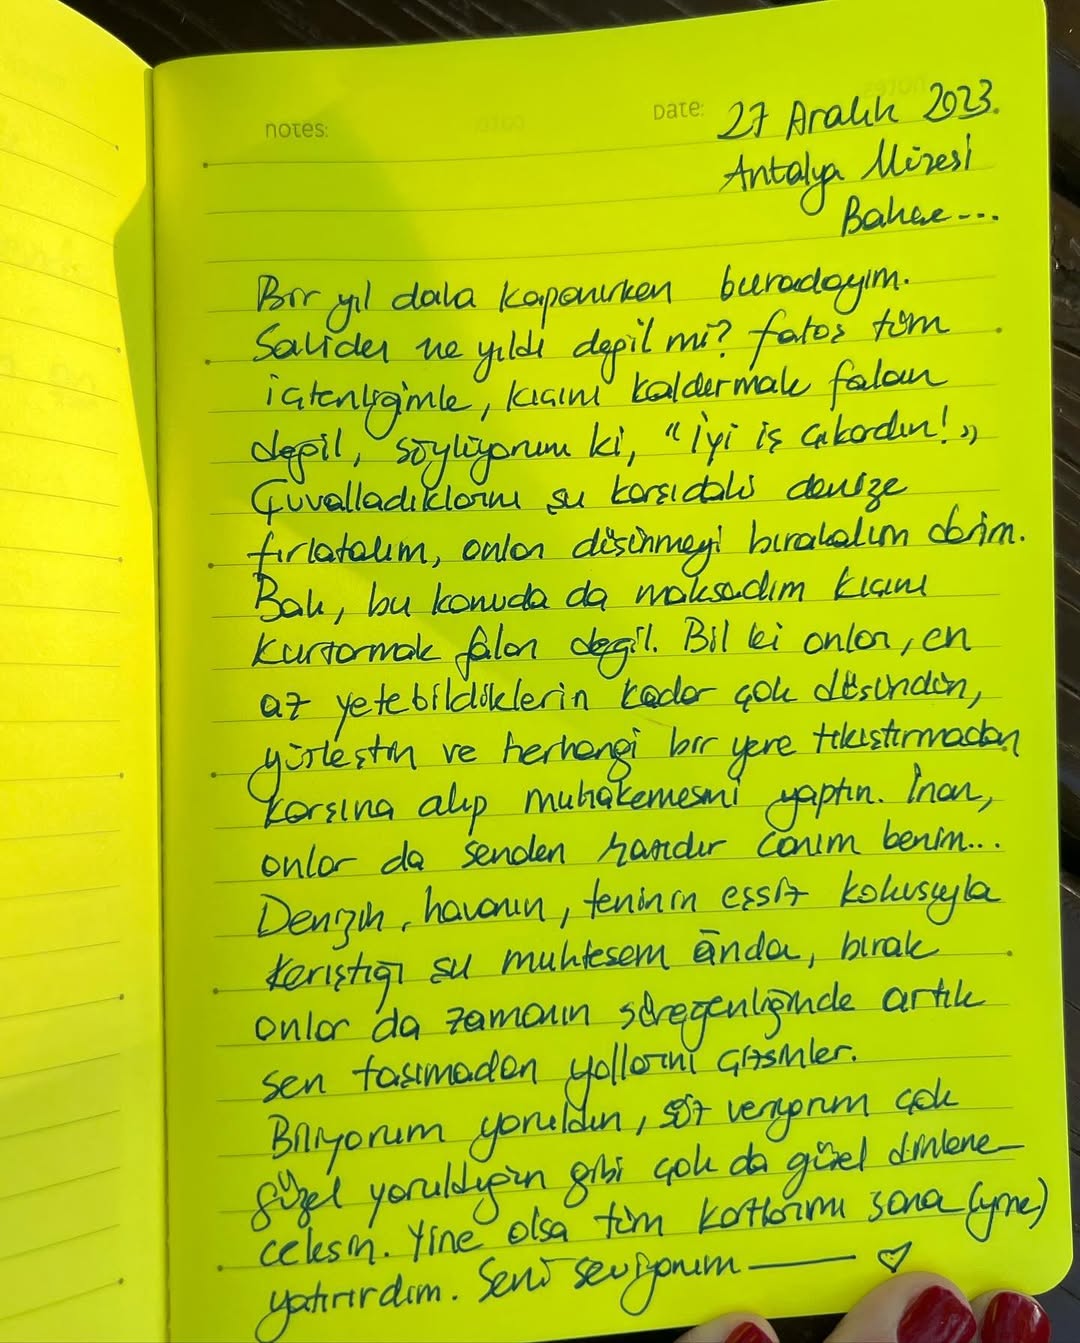 notes:
Date: 27 Aralık 2023.
Antalya Müzesi
Bahçe...
Bir yıl daha kapanırken buradayım.
Sahiden ne yıldı değil mi? Fatoş tüm
içtenliğimle, kıçını kaldırmak falan
değil, söylüyorum ki, "İyi iş çıkardın!"
Çuvalladıklarını şu karşıdaki denize
fırlatalım, onları düşünmeyi bırakalım derim.
Bak, bu konuda da maksadım kıçını
kurtarmak falan değil. Bil ki onları, en
az yetebildiklerin kadar çok düşündün,
yüzleştin ve herhangi bir yere tıkıştırmadan
karşına alıp muhakemesini yaptın. İnan,
onlar da senden razıdır canım benim...
Denizin, havanın, teninin eşsiz kokusuyla
karıştığı şu muhteşem ānda, bırak
onlar da zamanın süregenliğinde artık
sen taşımadan yollarını çizsinler.
Biliyorum yoruldun, söz veriyorum çok
güzel yorulduğun gibi çok da güzel dinlene-
ceksin. Yine olsa tüm kartlarımı sana (yine)
yatırırdım. Seni seviyorum ♡